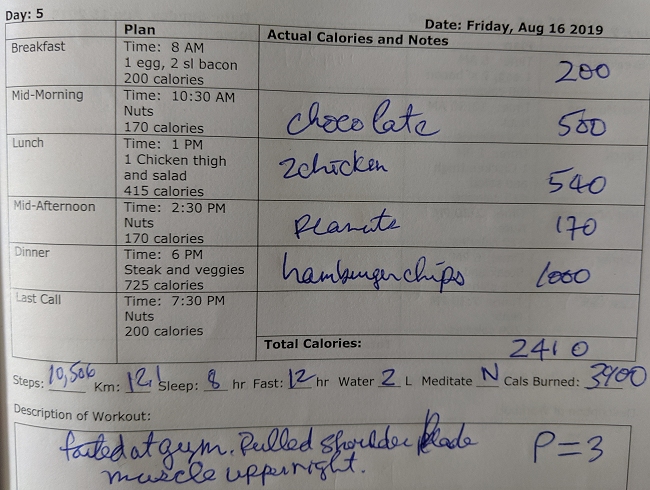 Day: 5
Date: Friday, Aug 16 2019
Plan Actual Calories and Notes
Breakfast Time: 8 AM
1 egg, 2 sl bacon
200 calories 200
Mid-Morning Time: 10:30 AM
Nuts
170 calories chocolate 500
Lunch Time: 1 PM
1 Chicken thigh
and salad
415 calories 2 chicken 540
Mid-Afternoon Time: 2:30 PM
Nuts
170 calories Peanuts 170
Dinner Time: 6 PM
Steak and veggies
725 calories hamburger chips 1000
Last Call Time: 7:30 PM
Nuts
200 calories
Total Calories: 2410
Steps: 10,506 Km: 12.1 Sleep: 8 hr Fast: 12 hr Water 2 L Meditate N Cals Burned: 3900
Description of Workout:
at gym. Pulled shoulder blade P=3
muscle upper right.